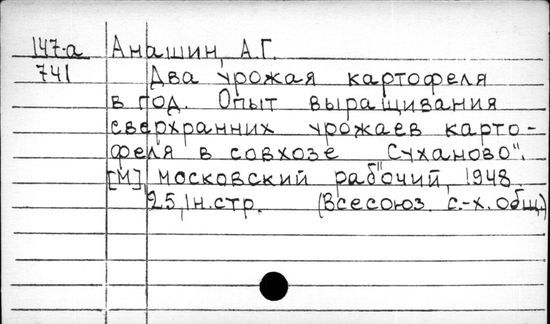 147-а Анашин, А.Г.
741 Два урожая картофеля
в год. Опыт выращивания
сверхранних урожаев карто-
феля в совхозе "Суханово".
[М] Московский рабочий, 1948.
25, 1н.стр. (Всесоюз. с.-х. общ.)